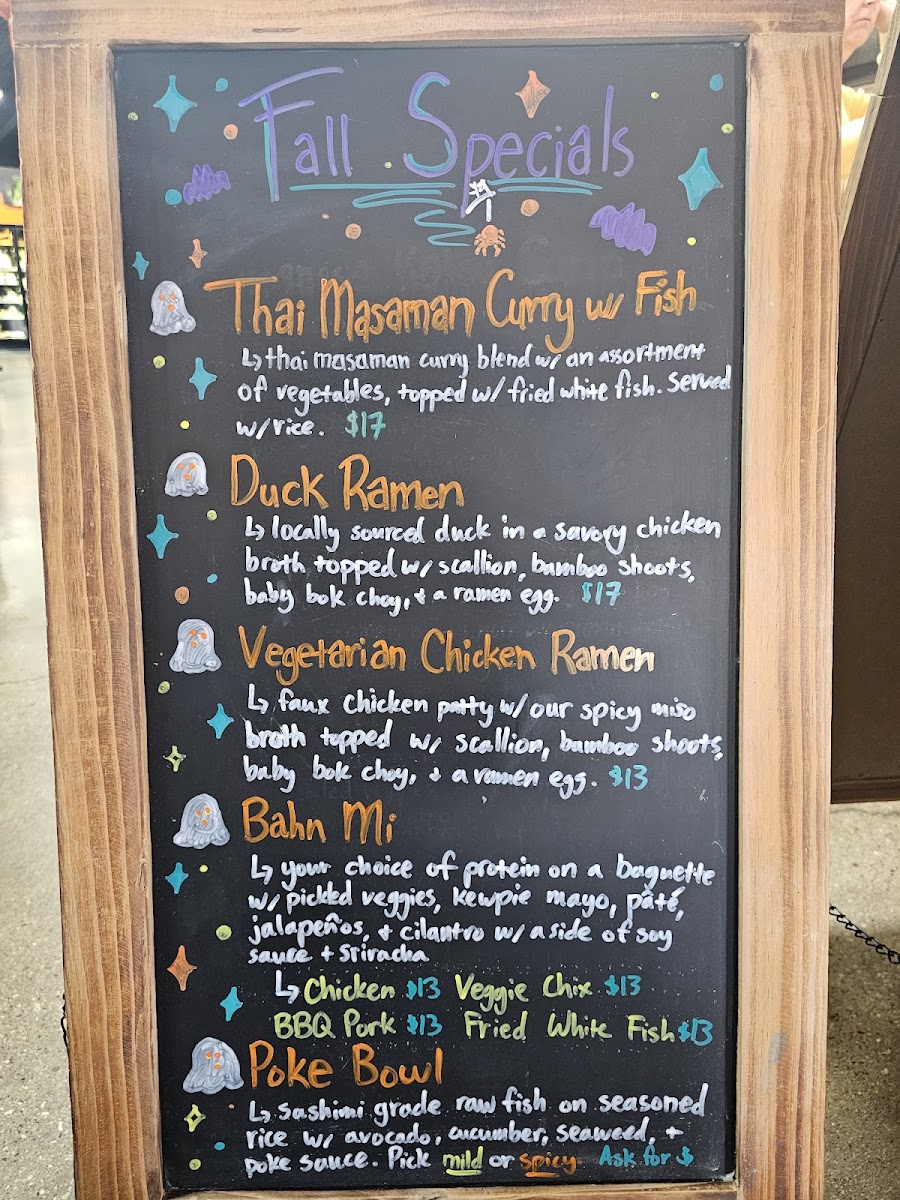 Fall Specials
Thai Masaman Curry w/ Fish
↳ thai masaman curry blend w/ an assortment
of vegetables, topped w/ fried white fish. Served
w/ rice. $17
Duck Ramen
↳ locally sourced duck in a savory chicken
broth topped w/ scallion, bamboo shoots,
baby bok choy, + a ramen egg. $17
Vegetarian Chicken Ramen
↳ faux chicken patty w/ our spicy miso
broth topped w/ scallion, bamboo shoots,
baby bok choy, + a ramen egg. $13
Bahn Mi
↳ your choice of protein on a baguette
w/ pickled veggies, kewpie mayo, pâté,
jalapeños, + cilantro w/ a side of soy
sauce + sriracha
↳ Chicken $13 Veggie Chix $13
BBQ Pork $13 Fried White Fish $13
Poke Bowl
↳ sashimi grade raw fish on seasoned
rice w/ avocado, cucumber, seaweed, +
poke sauce. Pick mild or spicy Ask for $